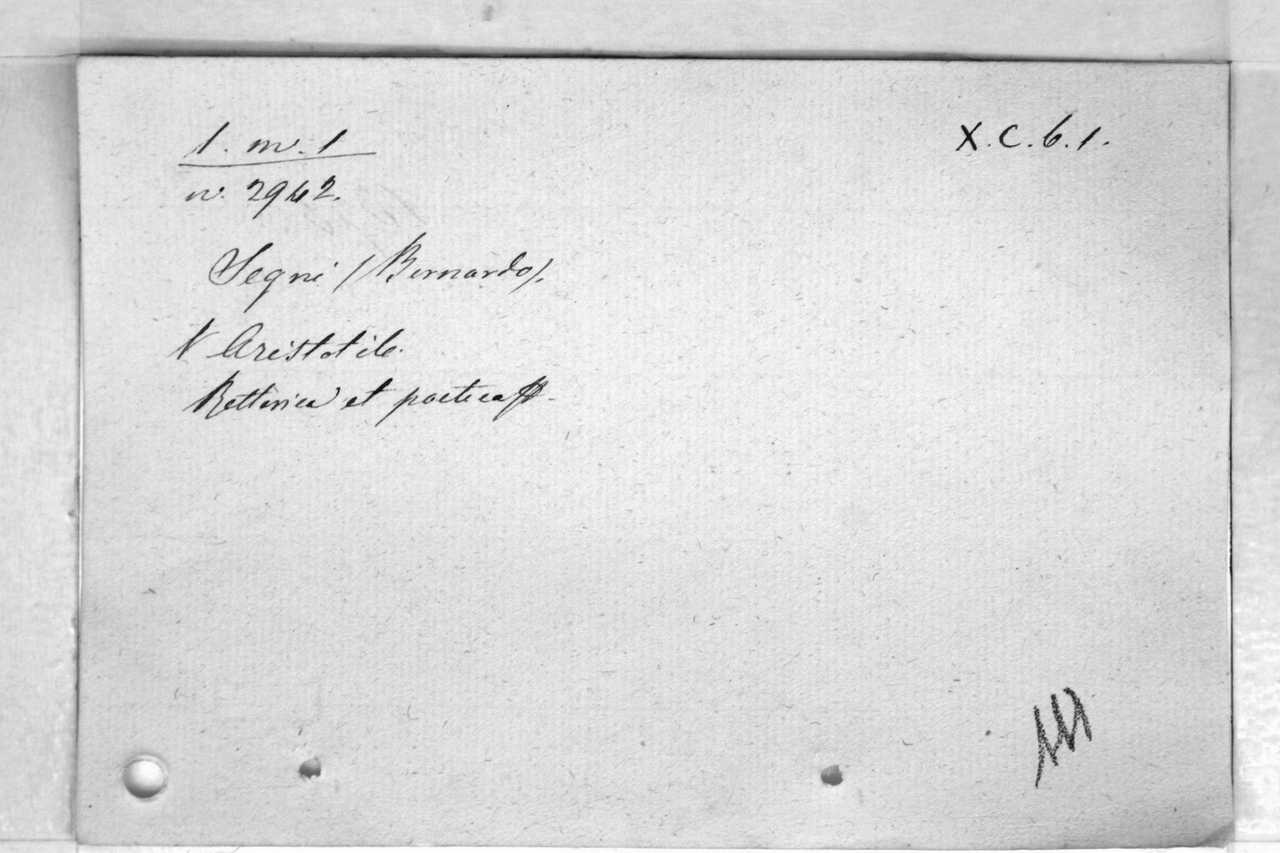 1. m. 1
X. C. 6. 1.
n. 2942.
Segni (Bernardo).
V Aristotile.
Rettorica et poetica